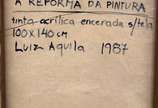 A REFORMA DA PINTURA
tinta acrílica encerada s/tela
100 x 140 cm
Luiz Aquila 1987